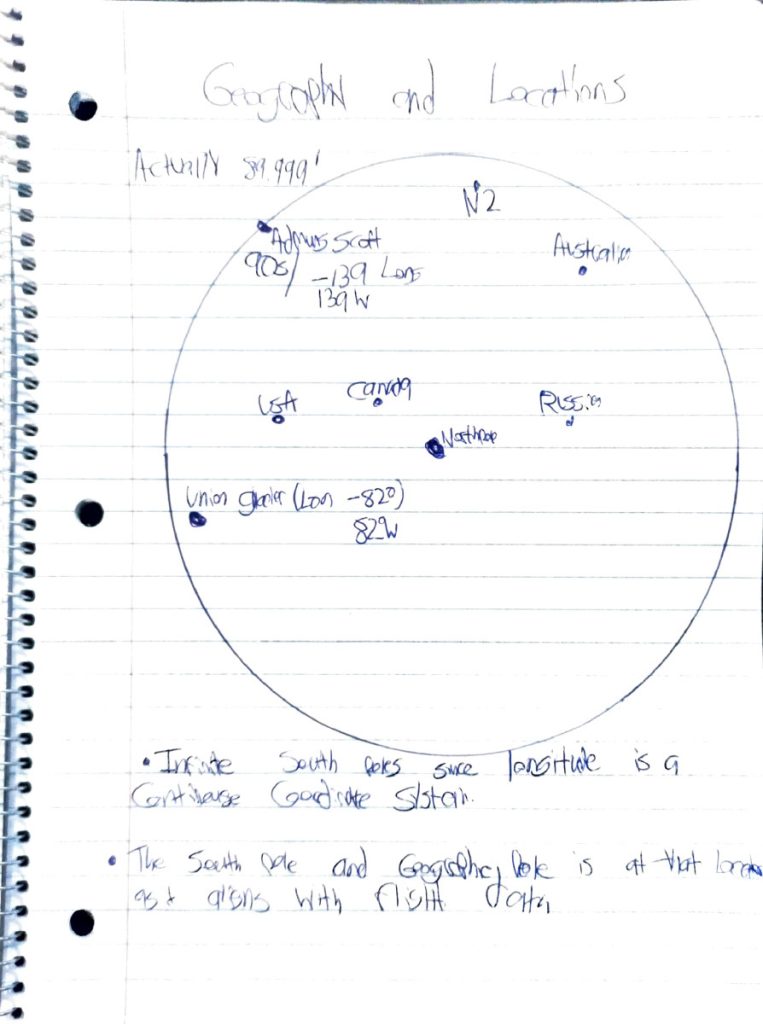 Geography and Locations
Actually 89.999'
NZ
Admuns Scott
90s/ -139 Lons
139 W
Australia
USA
Canada
Russia
Northpole
Union glacier (Lon -82°)
82W
• Infinite South Poles since longitude is a
Continuouse Coordinate System.
• The South Pole and Geographic Pole is at that location
as it aligns with flight data